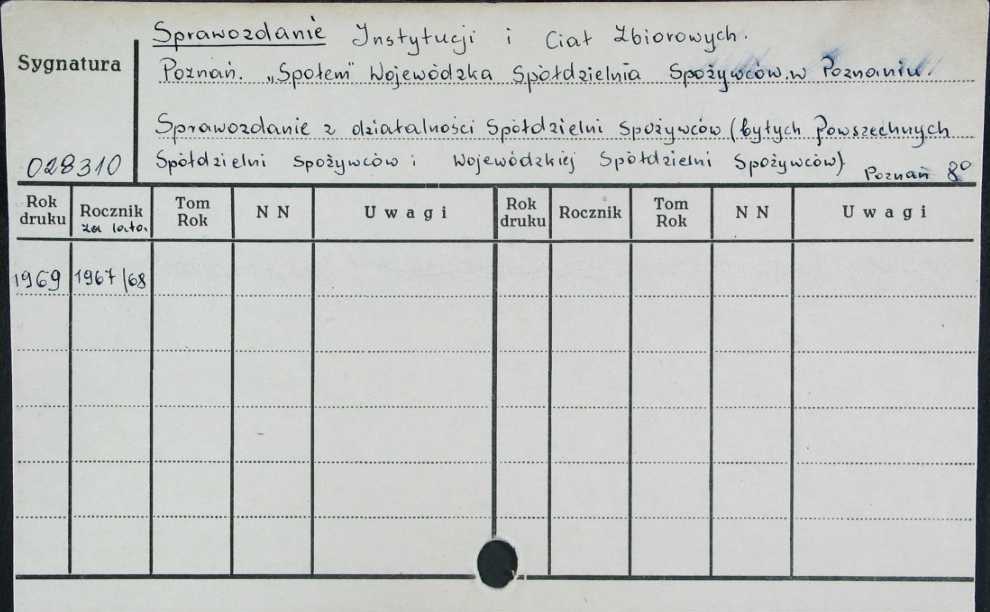 Sprawozdanie Instytucji i Ciał Zbiorowych.
Sygnatura
Poznań. „Społem" Wojewódzka Spółdzielnia Spożywców w Poznaniu.
Sprawozdanie z działalności Spółdzielni Spożywców (byłych Powszechnych
028310 Spółdzielni Spożywców i Wojewódzkiej Spółdzielni Spożywców)
Poznań 8°
Rok druku Rocznik za lata. Tom Rok N N Uwagi Rok druku Rocznik Tom Rok N N Uwagi
1969 1967/68